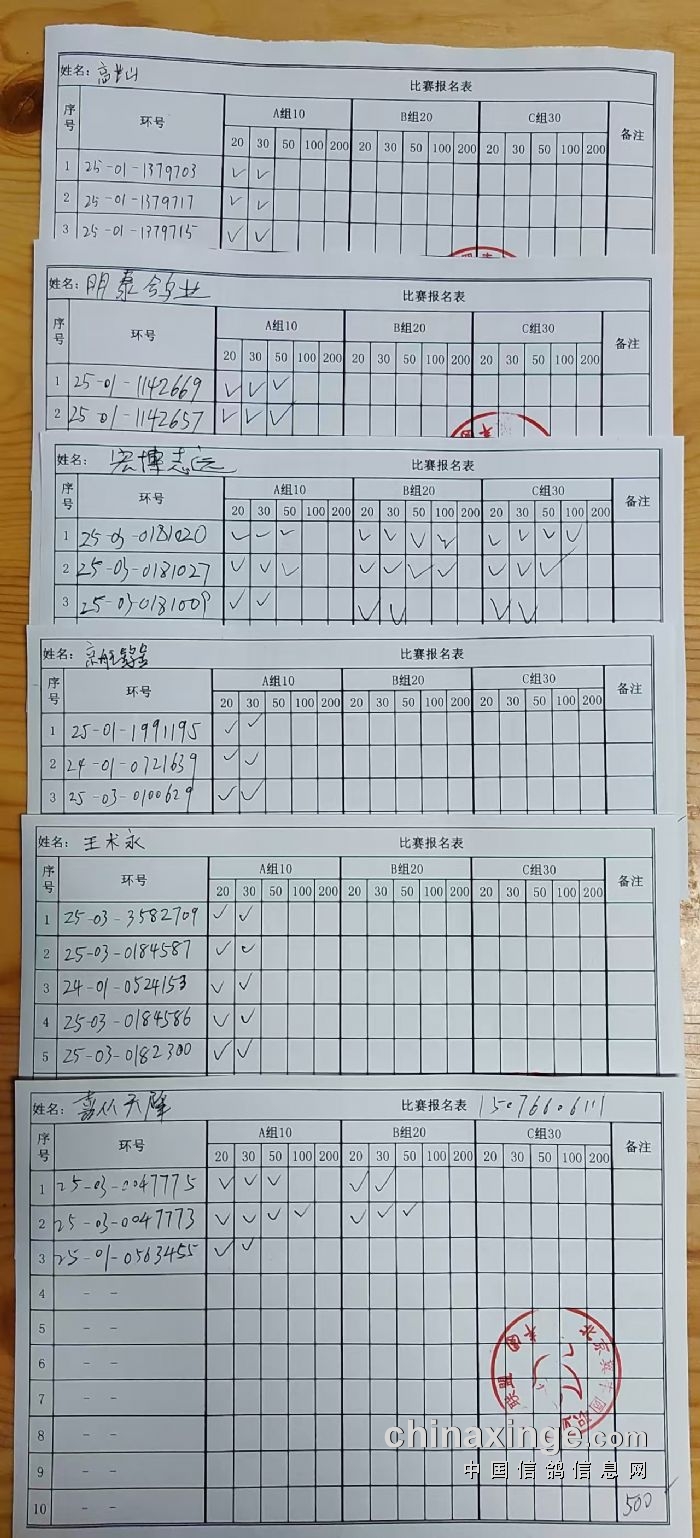 姓名: 高 山 比赛报名表
序号 环号 A组10 B组20 C组30 备注
20 30 50 100 200 20 30 50 100 200 20 30 50 100 200
1 25-01-1379703 ✓ ✓
2 25-01-1379717 ✓ ✓
3 25-01-1379715 ✓ ✓
姓名: 朋泰鸽业 比赛报名表
序号 环号 A组10 B组20 C组30 备注
20 30 50 100 200 20 30 50 100 200 20 30 50 100 200
1 25-01-1142669 ✓ ✓ ✓
2 25-01-1142657 ✓ ✓ ✓
姓名: 宏博志远 比赛报名表
序号 环号 A组10 B组20 C组30 备注
20 30 50 100 200 20 30 50 100 200 20 30 50 100 200
1 25-03-0181020 ✓ ✓ ✓ ✓ ✓ ✓ ✓ ✓ ✓ ✓ ✓
2 25-03-0181027 ✓ ✓ ✓ ✓ ✓ ✓ ✓ ✓ ✓ ✓
3 25-03-0181009 ✓ ✓ ✓ ✓ ✓ ✓
姓名: 比赛报名表
序号 环号 A组10 B组20 C组30 备注
20 30 50 100 200 20 30 50 100 200 20 30 50 100 200
1 25-01-1991195 ✓ ✓
2 24-01-0721639 ✓ ✓
3 25-03-0100629 ✓ ✓
姓名: 王术永 比赛报名表
序号 环号 A组10 B组20 C组30 备注
20 30 50 100 200 20 30 50 100 200 20 30 50 100 200
1 25-03-3582709 ✓ ✓
2 25-03-0184587 ✓ ✓
3 24-01-0524153 ✓ ✓
4 25-03-0184586 ✓ ✓
5 25-03-0182300 ✓ ✓
姓名: 喜从天降 比赛报名表 15076606111
序号 环号 A组10 B组20 C组30 备注
20 30 50 100 200 20 30 50 100 200 20 30 50 100 200
1 25-03-0047775 ✓ ✓ ✓ ✓ ✓
2 25-03-0047773 ✓ ✓ ✓ ✓ ✓ ✓ ✓
3 25-01-0563455 ✓ ✓
4 - -
5 - -
6 - -
7 - -
8 - -
9 - -
10 - - 500
chinaxinge.com
中国信鸽信息网